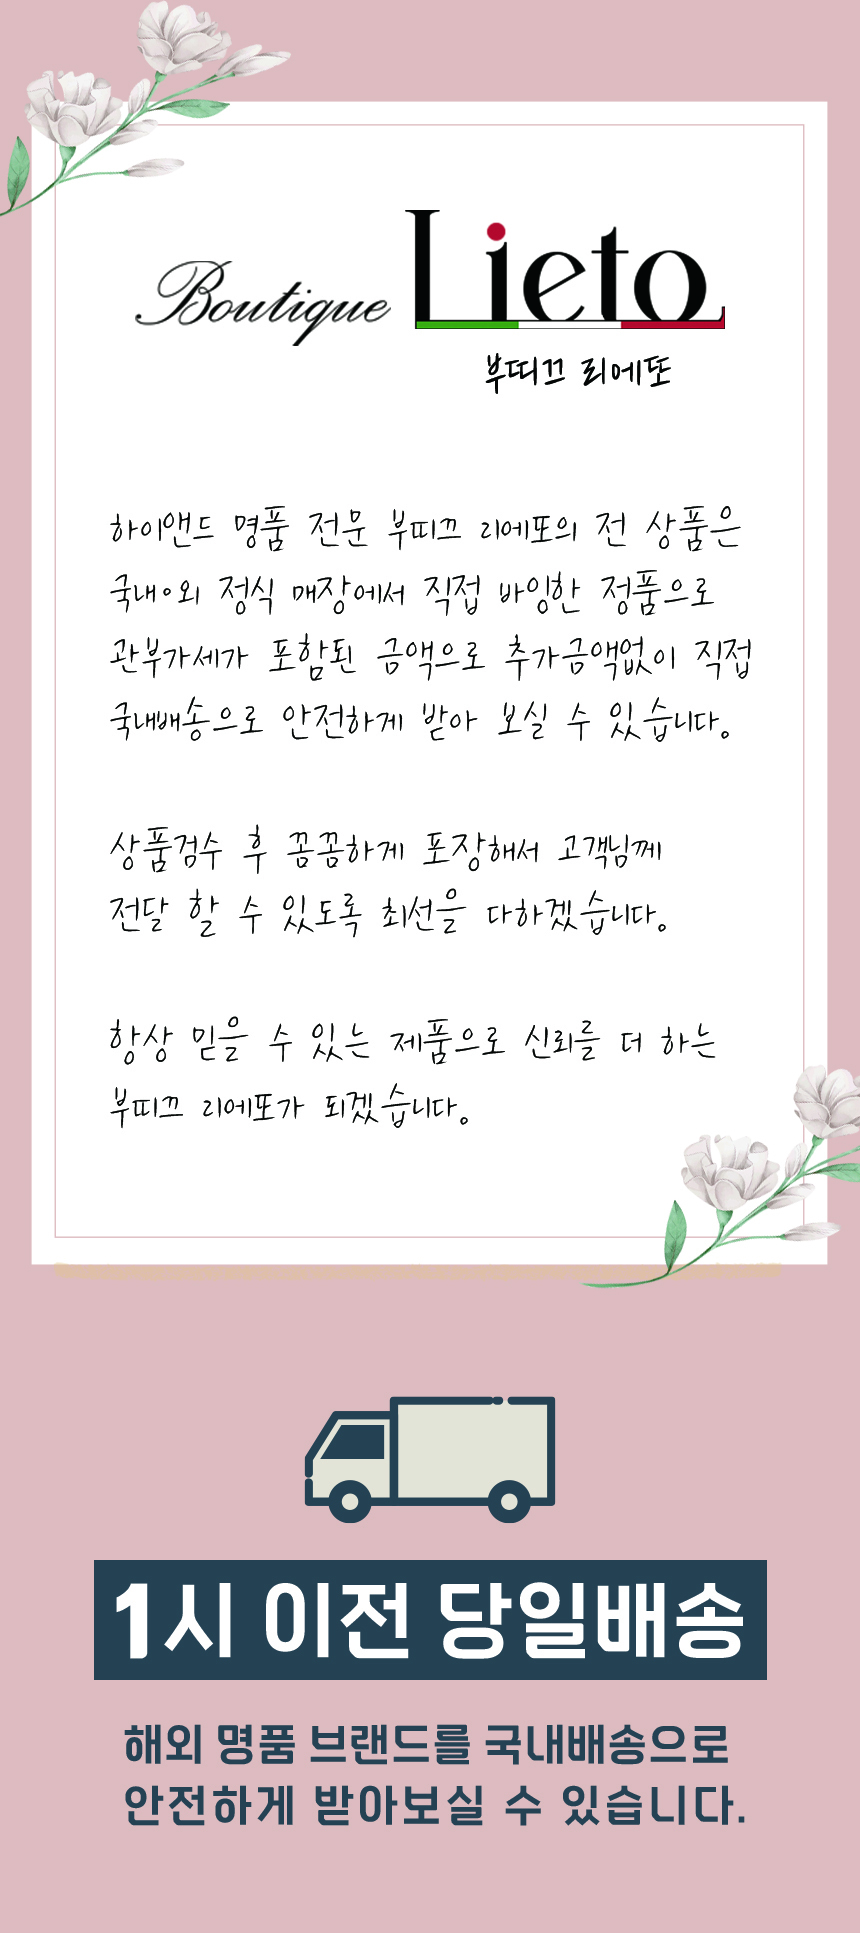 Boutique Lieto
부띠끄 리에또
하이앤드 명품 전문 부띠끄 리에또의 전 상품은
국내•외 정식 매장에서 직접 바잉한 정품으로
관부가세가 포함된 금액으로 추가금액없이 직접
국내배송으로 안전하게 받아 보실 수 있습니다.
상품검수 후 꼼꼼하게 포장해서 고객님께
전달 할 수 있도록 최선을 다하겠습니다.
항상 믿을 수 있는 제품으로 신뢰를 더 하는
부띠끄 리에또가 되겠습니다.
1시 이전 당일배송
해외 명품 브랜드를 국내배송으로
안전하게 받아보실 수 있습니다.